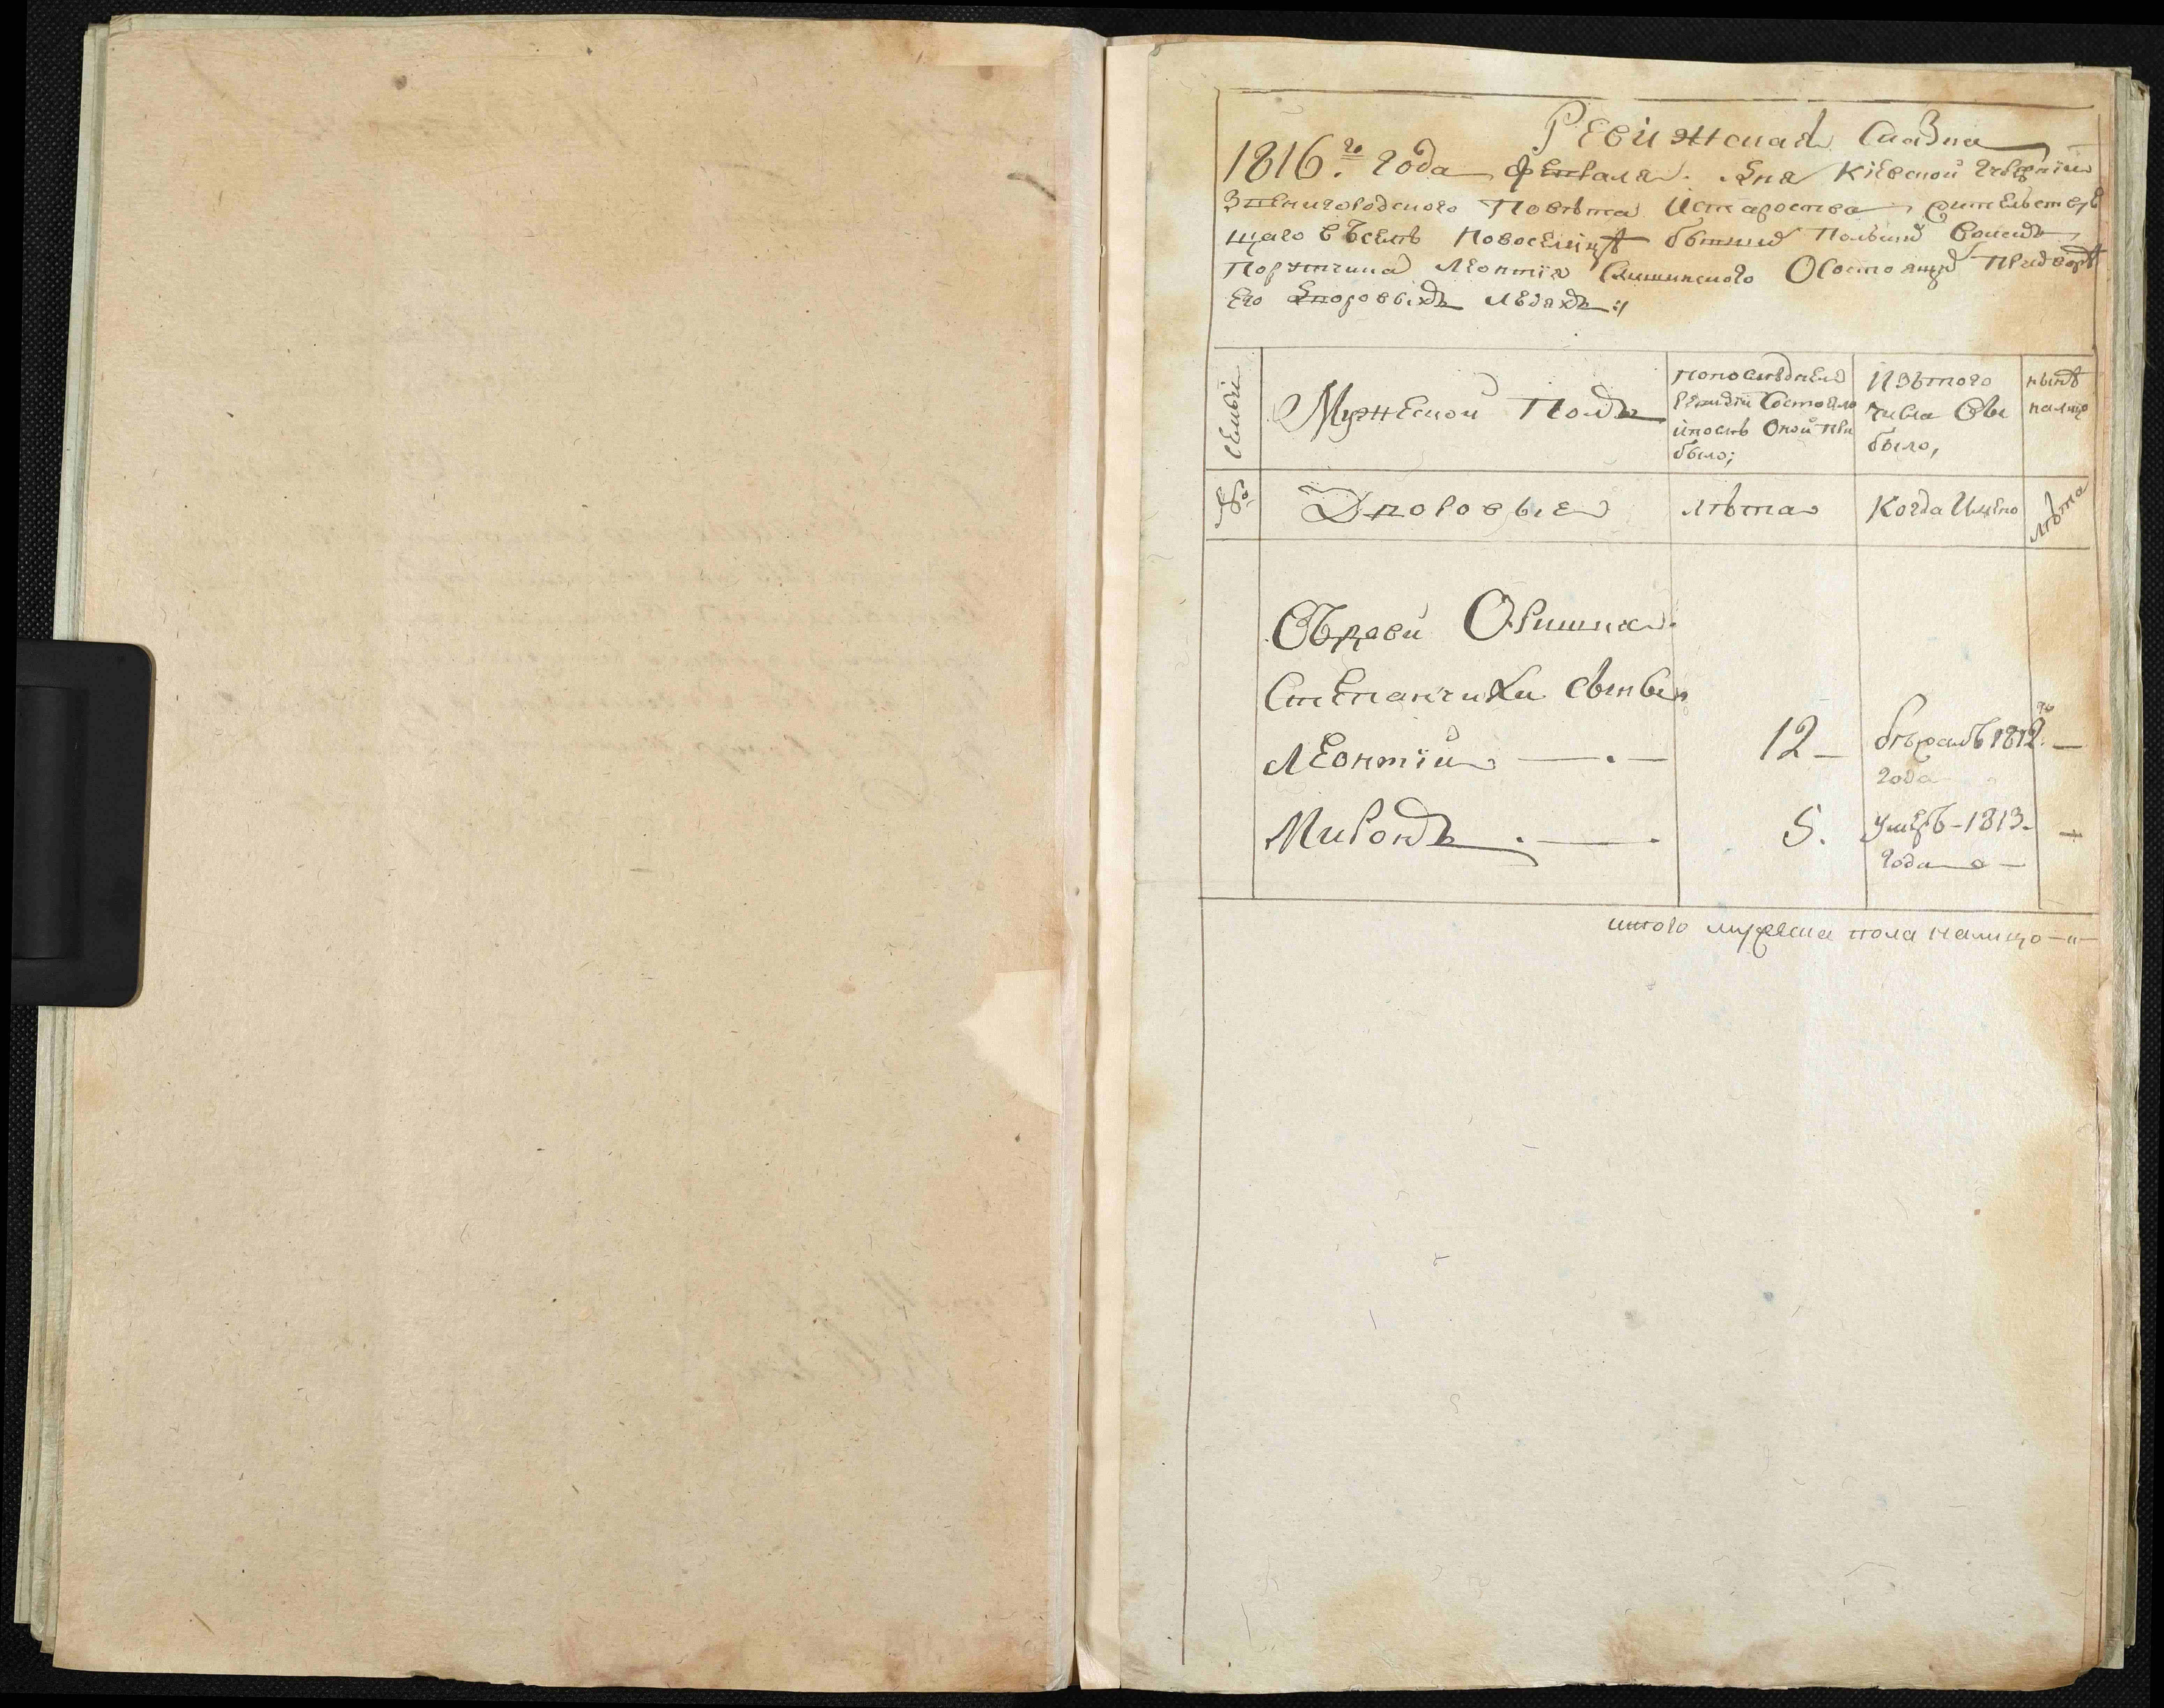 Ревижская Сказка
1816.го года февраля. дня Кіевской губернїи
Звенигородского Повѣта Истароства жительству
щаго въселѣ Новоселицѣ бывшы Польшы Войскъ
Порутчика Леонтїя Состоящы Придворѣ
Его Дворовыхъ людяхъ:/
Семьи
Мужеской Полъ
попоследней
ревизїи Состояло
ипослѣ Оной при
было;
Изътого
числа Вы
было,
нынѣ
налицо
№
Дворовые
лѣта
Когда Имѣно
лѣта
Въдови Оришки
Степанчихи сынвья
Леонтїй — . —
12 —
бѣжалъ 1812го
года
—
Миронъ . — .
5.
Умеръ - 1813.
года —
—
итого мужеска пола налицо —"—